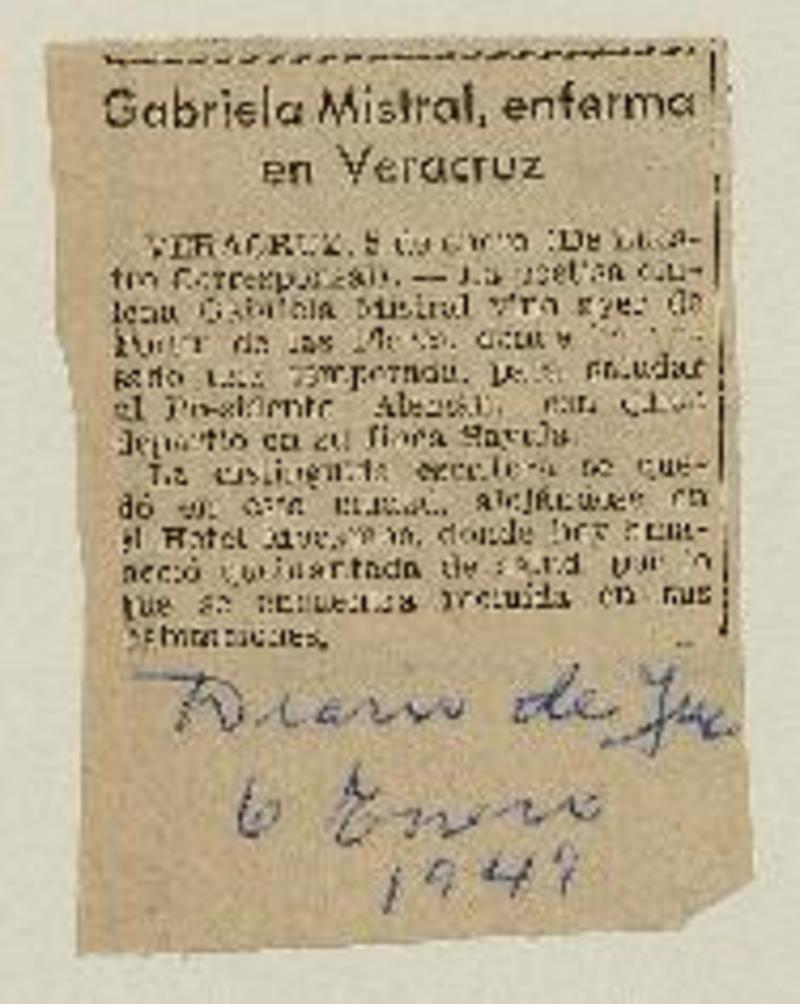 Gabriela Mistral, enferma
en Veracruz
VERACRUZ, 5 de enero (De nues-
tro Corresponsal). — La poetisa chi-
lena Gabriela Mistral vino ayer de
de las donde
sado una temporada, para saludar
al Presidente Alemán, con quien
departió en su finca Sayula.
La distinguida escritora se que-
dó en esta ciudad, alojándose en
el Hotel donde hoy ama-
neció quebrantada de salud por lo
que se encuentra recluida en sus
habitaciones.
Diario de
6 Enero
1949